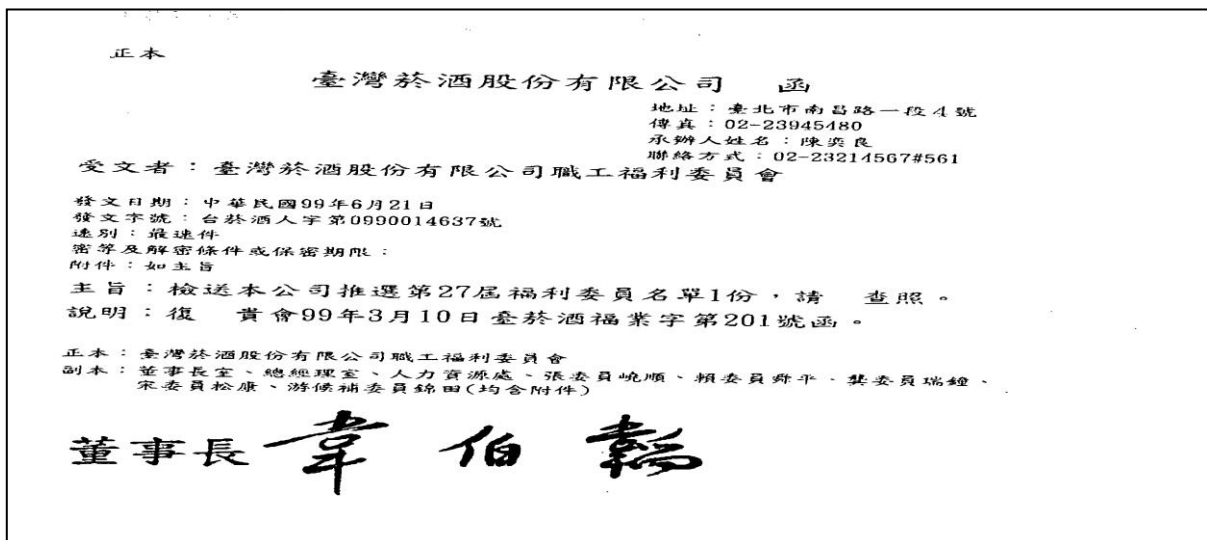 正本
臺灣菸酒股份有限公司 函
地址：臺北市南昌路一段4號
傳真：02-23945480
承辦人姓名：陳奕良
聯絡方式：02-23214567#561
受文者：臺灣菸酒股份有限公司職工福利委員會
發文日期：中華民國99年6月21日
發文字號：台菸酒人字第0990014637號
速別：最速件
密等及解密條件或保密期限：
附件：如主旨
主旨：檢送本公司推選第27屆福利委員名單1份，請 查照。
說明：復 貴會99年3月10日臺菸酒福業字第201號函。
正本：臺灣菸酒股份有限公司職工福利委員會
副本：董事長室、總經理室、人力資源處、張委員嶢順、賴委員舜平、龔委員瑞鐘、
宋委員松康、游候補委員錦田(均含附件)
董事長 韋伯韜